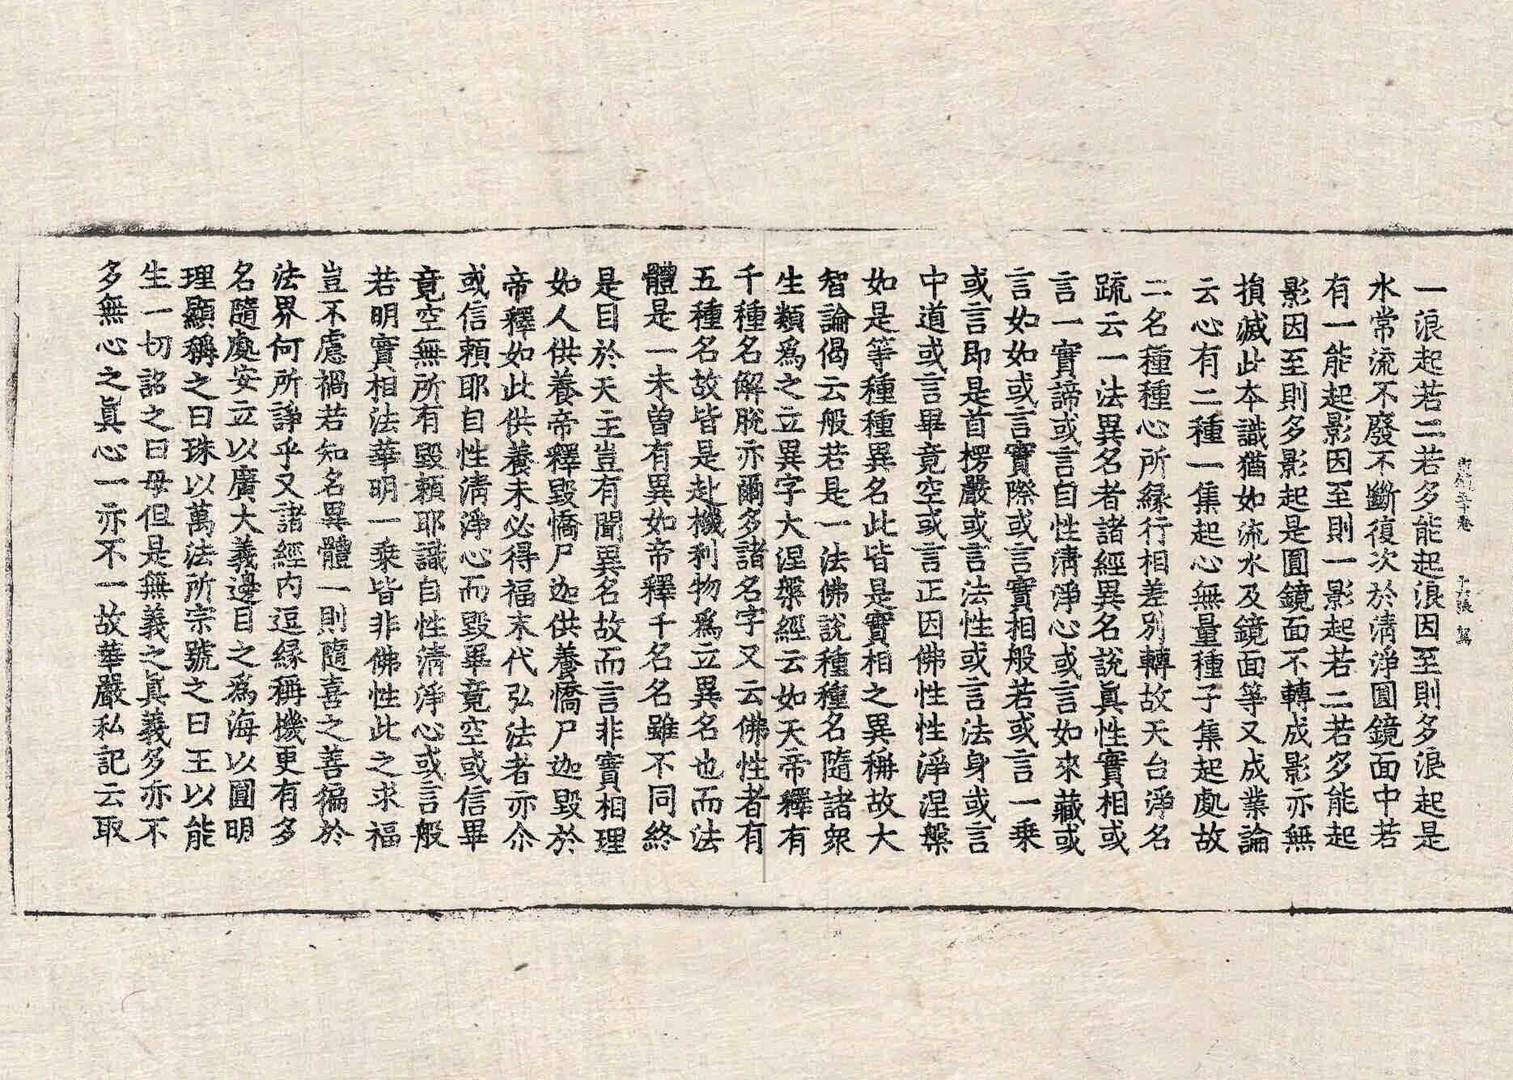 一浪起若二若多能起浪因至則多浪起是
水常流不廢不斷復次於清淨圓鏡面中若
有一能起影因至則一影起若二若多能起
影因至則多影起是圓鏡面不轉成影亦無
損滅此本識猶如流水及鏡面等又成業論
云心有二種一集起心無量種子集起處故
二名種種心所緣行相差別轉故天台淨名
疏云一法異名者諸經異名說眞性實相或
言一實諦或言自性清淨心或言如來藏或
言如如或言實際或言實相般若或言一乘
或言即是首楞嚴或言法性或言法身或言
中道或言畢竟空或言正因佛性性淨涅槃
如是等種種異名此皆是實相之異稱故大
智論偈云般若是一法佛說種種名隨諸衆
生類爲之立異字大涅槃經云如天帝釋有
千種名解脫亦爾多諸名字又云佛性者有
五種名故皆是赴機利物爲立異名也而法
體是一未曾有異如帝釋千名名雖不同終
是目於天主豈有聞異名故而言非實相理
如人供養帝釋毀憍尸迦供養憍尸迦毀於
帝釋如此供養未必得福末代弘法者亦尒
或信賴耶自性清淨心而毀畢竟空或信畢
竟空無所有毀賴耶識自性清淨心或言般
若明實相法華明一乘皆非佛性此之求福
豈不慮禍若知名異體一則隨喜之善徧於
法界何所諍乎又諸經內逗緣稱機更有多
名隨處安立以廣大義邊目之爲海以圓明
理顯稱之曰珠以萬法所宗號之曰王以能
生一切詺之曰母但是無義之眞義多亦不
多無心之眞心一亦不一故華嚴私記云取